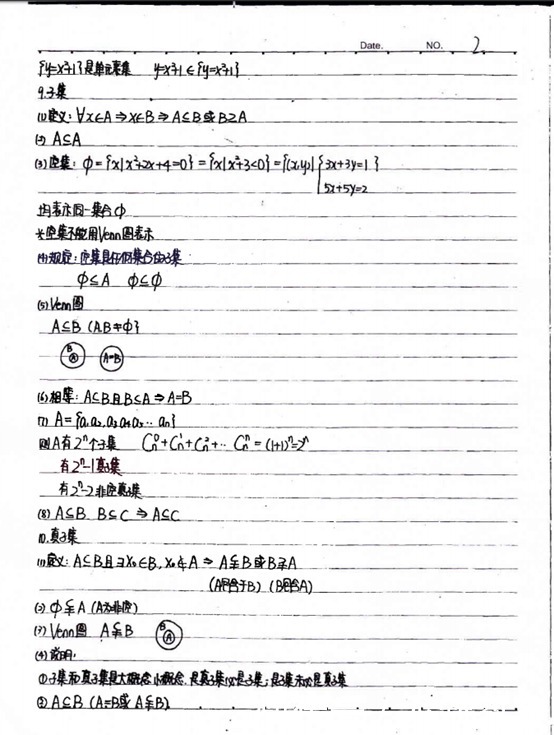 Date. NO. 2
{y=x²+1}是单元素集 y=x²+1∈{y=x²+1}
9.子集
(1)定义:∀x∈A⇒x∈B⇒A⊆B或B⊇A
(2) A⊆A
(3)空集:φ={x|x²+2x+4=0}={x|x²+3<0}={(x,y)|{3x+3y=1}
5x+5y=2
均表示同一集合φ
*空集不能用Venn图表示
(4)规定:空集是任何集合的子集
φ⊆A φ⊆φ
(5) Venn图
A⊆B (A.B≠φ}
B A A=B
(6)相等:A⊆B且B⊆A⇒A=B
(7) A={a₁a₂.a₃a₄a₅..aₙ}
则A有2ⁿ个子集 Cₙ⁰+Cₙ¹+Cₙ²+..Cₙⁿ=(1+1)ⁿ=2ⁿ
有2ⁿ-1真子集
有2ⁿ-2非空真子集
(8) A⊆B. B⊆C ⇒ A⊆C
10.真子集
(1)定义:A⊆B且∃x₀∈B,x₀∉A ⇒ A⫋B或B⫌A
(A包含于B) (B包含A)
(2) φ⫋A (A为非空)
(3) Venn图 A⫋B B A
(4)说明:
①子集和真子集是大概念小概念.是真子集必是子集;是子集未必是真子集
② A⊆B (A=B或A⫋B)